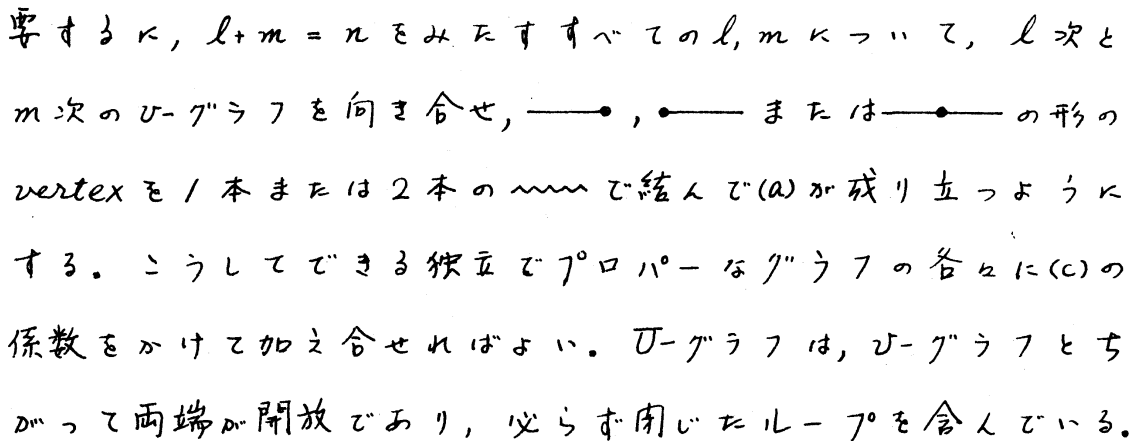 要するに, l+m = n をみたすすべての l, m について, l 次と
m 次の υ-グラフを向き合せ, ——• , •—— または ——•—— の形の
vertex を 1 本または 2 本の 〰〰 で結んで (a) が成り立つように
する。こうしてできる独立でプロパーなグラフの各々に (c) の
係数をかけて加え合せればよい. U-グラフは, υ-グラフとち
がって両端が開放であり, 必らず閉じたループを含んでいる.